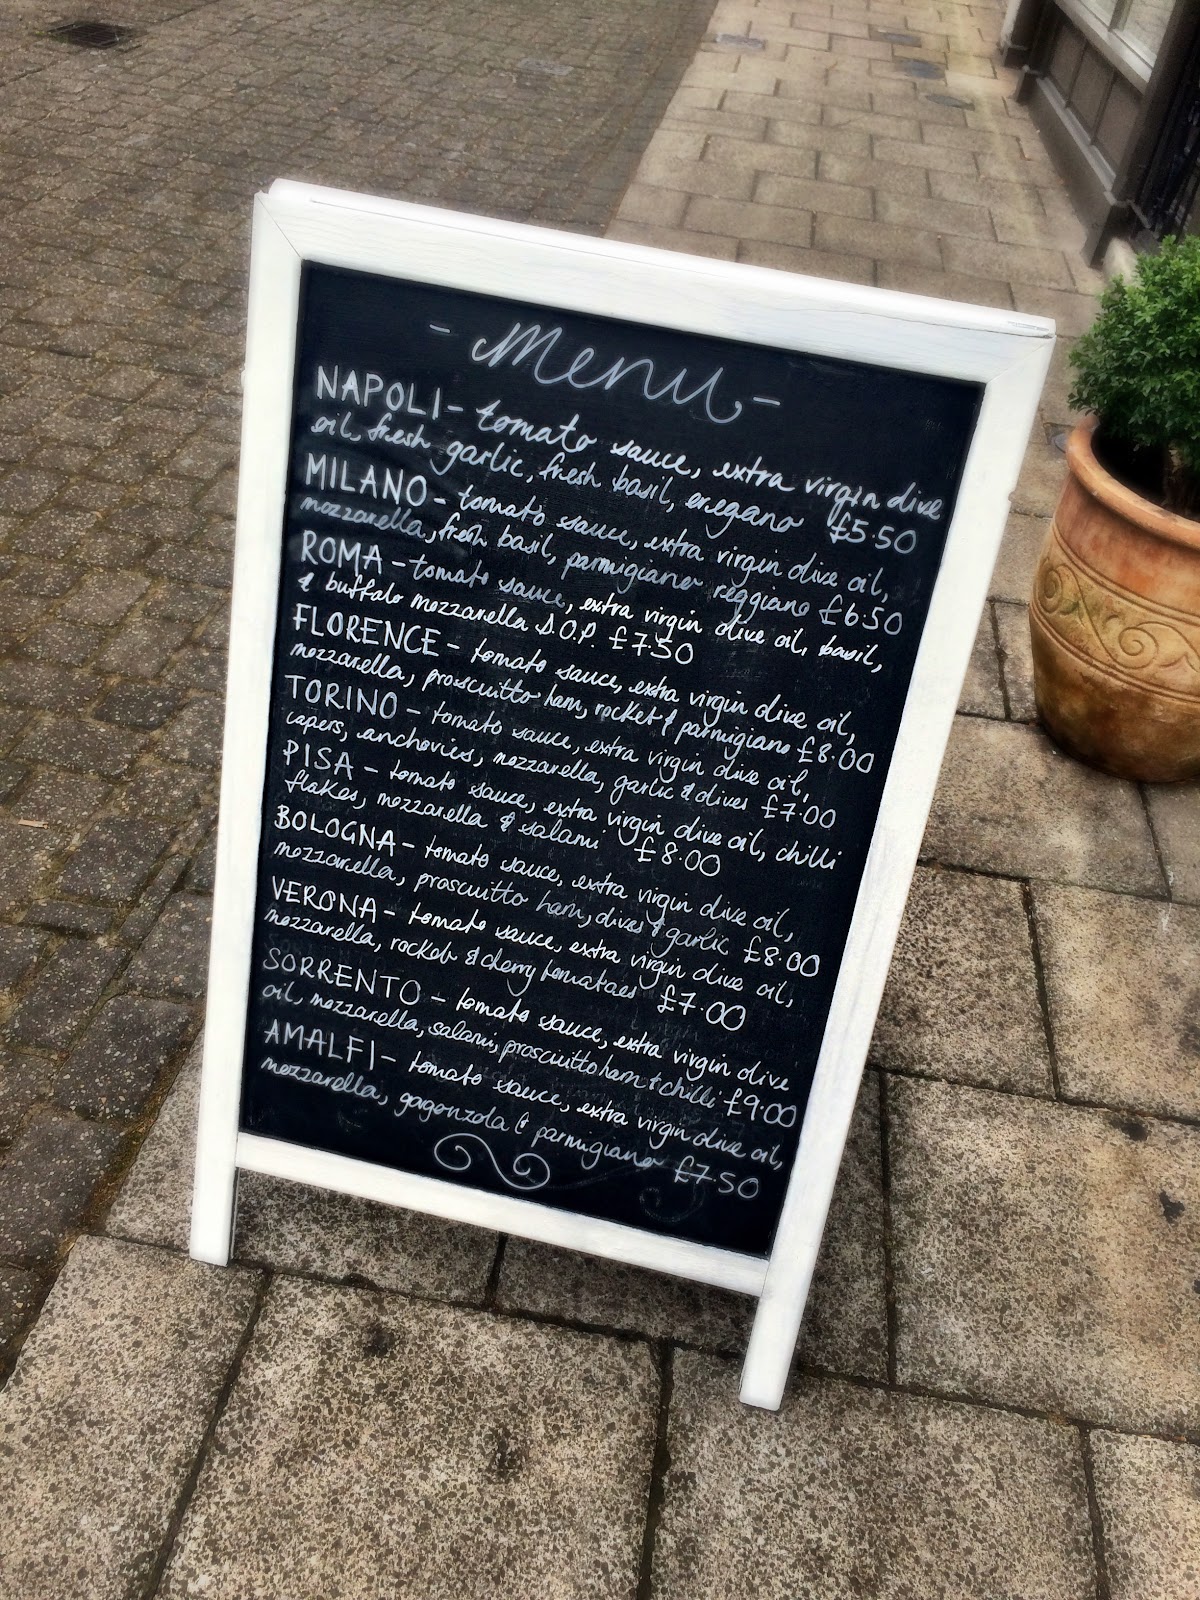 - Menu -
NAPOLI - tomato sauce, extra virgin olive
oil, fresh garlic, fresh basil, oregano £5.50
MILANO - tomato sauce, extra virgin olive oil,
mozzarella, fresh basil, parmigiano reggiano £6.50
ROMA - tomato sauce, extra virgin olive oil, basil,
& buffalo mozzarella D.O.P. £7.50
FLORENCE - tomato sauce, extra virgin olive oil,
mozzarella, proscuitto ham, rocket & parmigiano £8.00
TORINO - tomato sauce, extra virgin olive oil,
capers, anchovies, mozzarella, garlic & olives £7.00
PISA - tomato sauce, extra virgin olive oil, chilli
flakes, mozzarella & salami £8.00
BOLOGNA - tomato sauce, extra virgin olive oil,
mozzarella, proscuitto ham, olives & garlic £8.00
VERONA - tomato sauce, extra virgin olive oil,
mozzarella, rocket & cherry tomatoes £7.00
SORRENTO - tomato sauce, extra virgin olive
oil, mozzarella, salami, prosciutto ham + chilli £9.00
AMALFI - tomato sauce, extra virgin olive oil,
mozzarella, gorgonzola & parmigiano £7.50